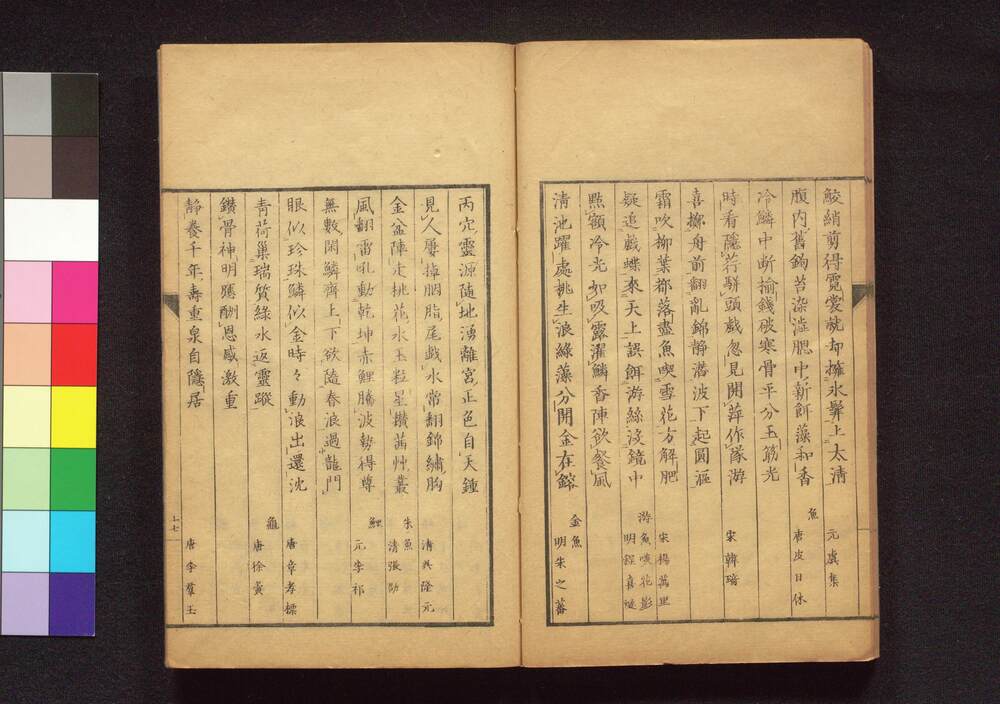 鮫綃剪得霓裳就却擁氷鬟上太淸 元虞集
腹內舊鈎苔染澁腮中新餌藻和香 魚 唐皮日休
冷鱗中断揄錢破寒骨平分玉筯光
時看隱荇駢頭戲忽見開萍作隊游 宋韓琦
喜擲舟前翻亂錦静潛波下起圓漚
霜吹柳葉都落盡魚喫雪花方解肥 宋楊萬里
疑追戯蝶來天上誤餌游絲沒鏡中 游魚唼花影 明程嘉燧
點額冷光如吸露濯鱗香陣欲餐風
淸池躍處桃生浪綠藻分開金在鎔 金魚 明朱之蕃
丙穴靈源隨地湧離宮正色自天鍾
見人屢掉胭脂尾戯水常翻錦繡胸 淸
金盆陣走桃花水玉粒星攢茜艸叢 朱魚 淸張劭
風翻雷吼動乾坤赤鯉騰波勢得尊 鯉 元李祁
無數閑鱗齊上下欲隨春浪過龍門
眼似珍珠鱗似金時々動浪出還沈 唐章孝標
靑荷巢瑞質綠水返靈蹤 龜 唐徐夤
鑽骨神明應酬恩感激重
静養千年壽重泉自隱居 唐李羣玉